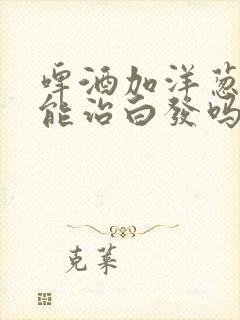 啤酒加洋葱
能治白發吗
克莱